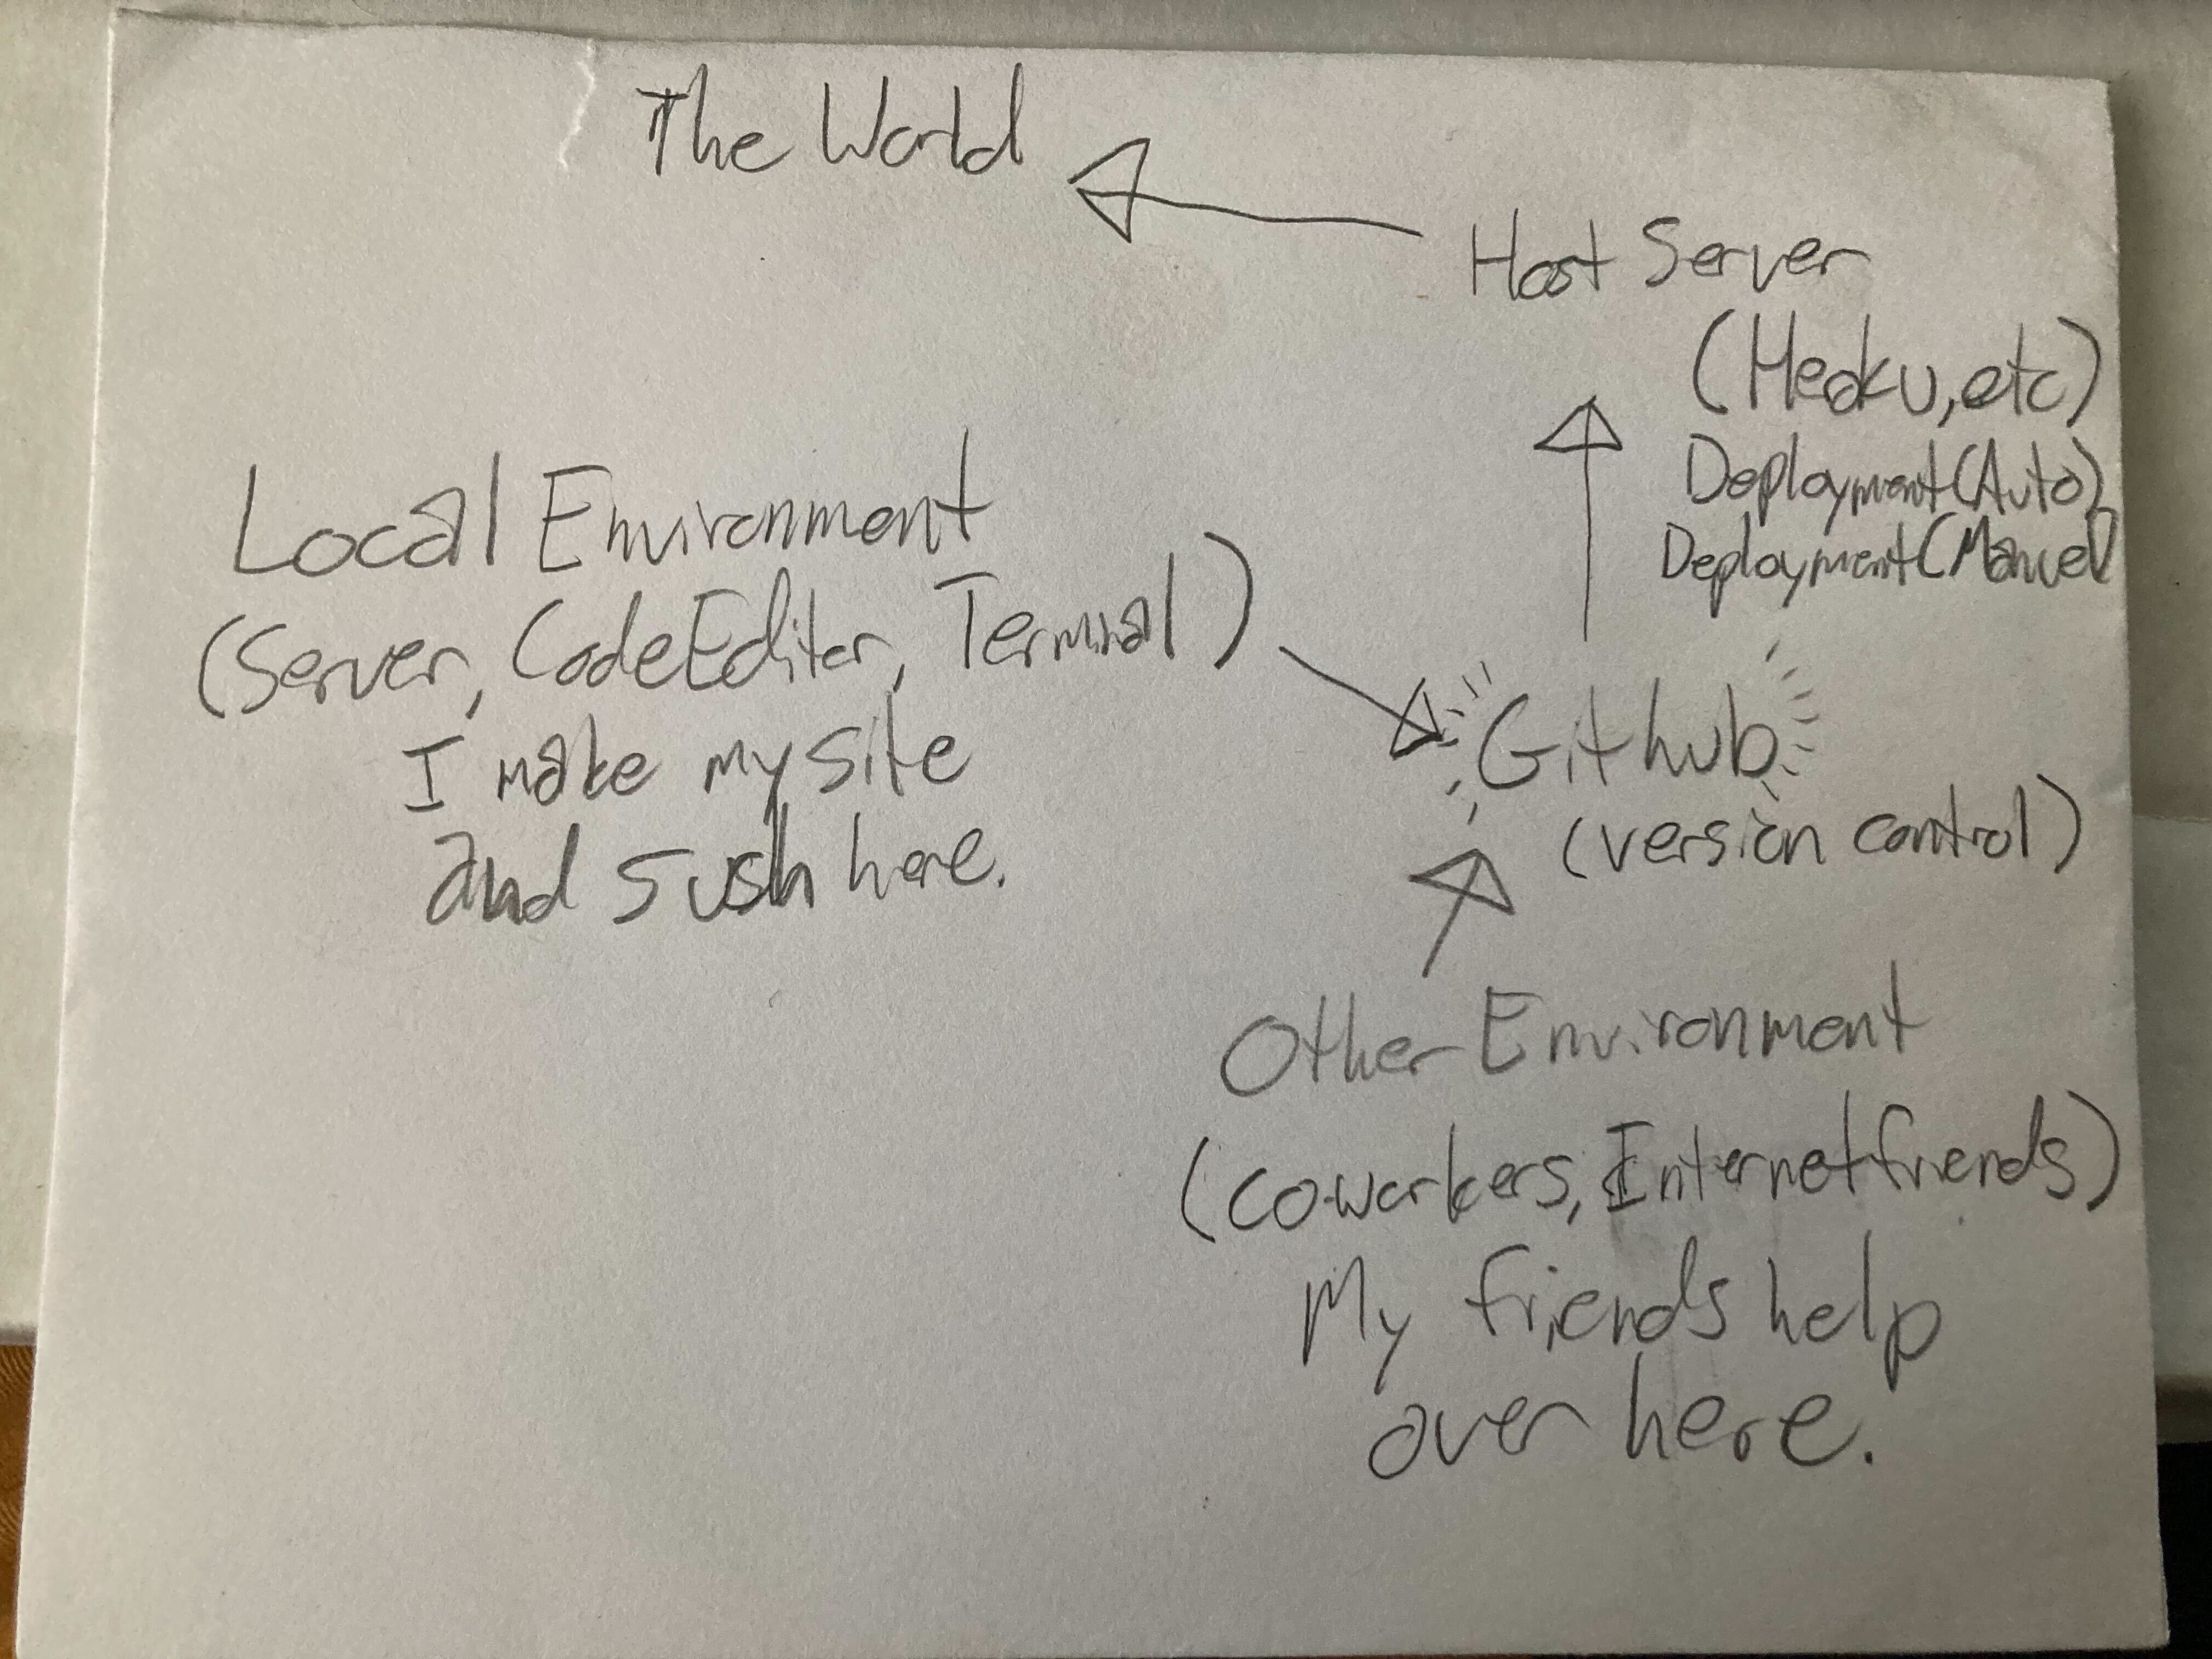 The World
Host Server
(Heoku, etc)
Deployment (Auto)
Deployment (Manuel)
Local Environment
(Server, CodeEditor, Terminal)
I make my site
and sush here.
Github
(version control)
Other Environment
(coworkers, Internet friends)
My friends help
over here.